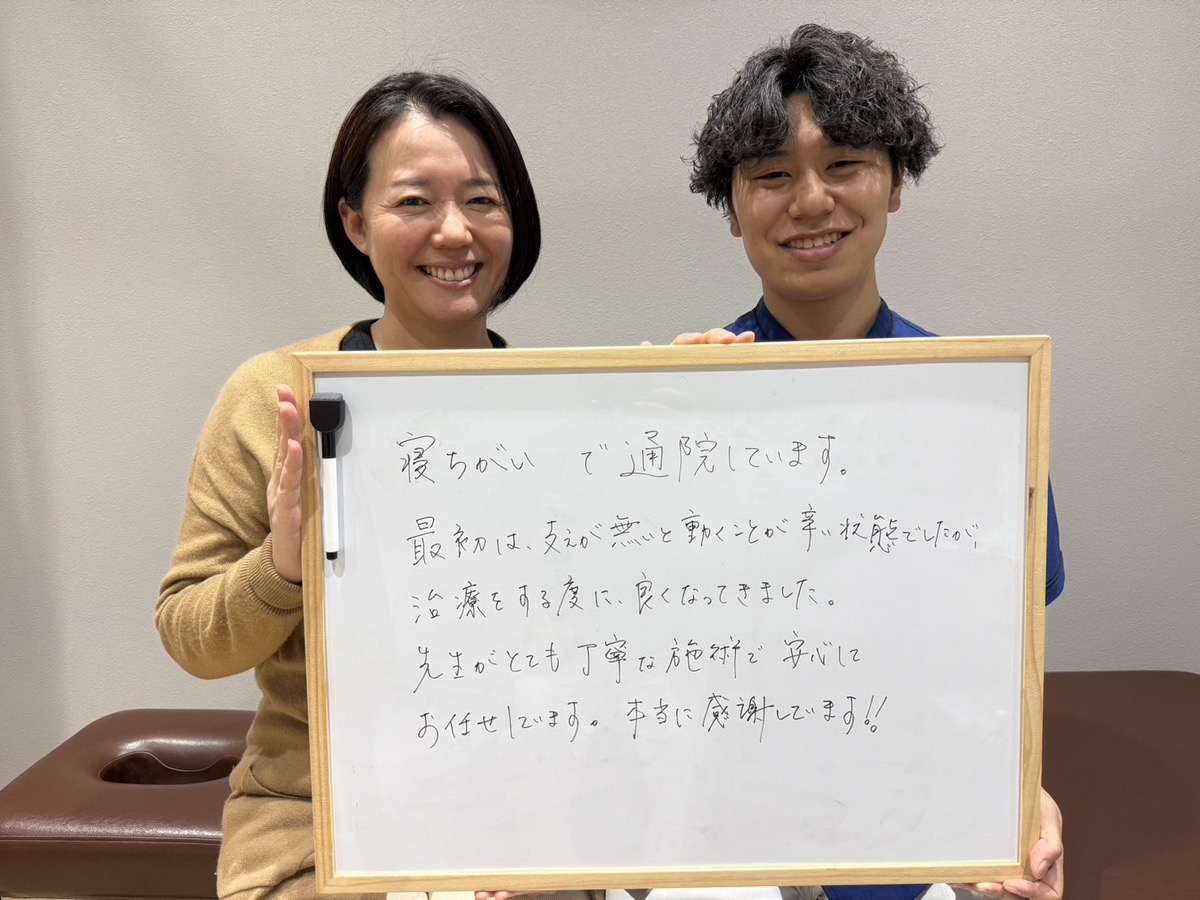 寝ちがい で通院しています。
最初は、支えが無いと動くことが辛い状態でしたが、
治療をする度に、良くなってきました。
先生がとても丁寧な施術で安心して
お任せしています。本当に感謝しています!!